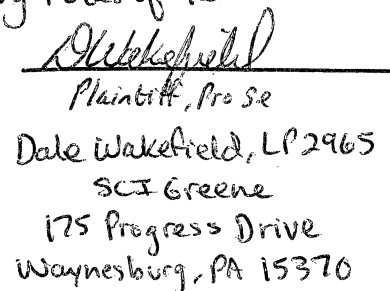 DWakefield
Plaintiff, Pro Se
Dale Wakefield, LP2965
SCI Greene
175 Progress Drive
Waynesburg, PA 15370